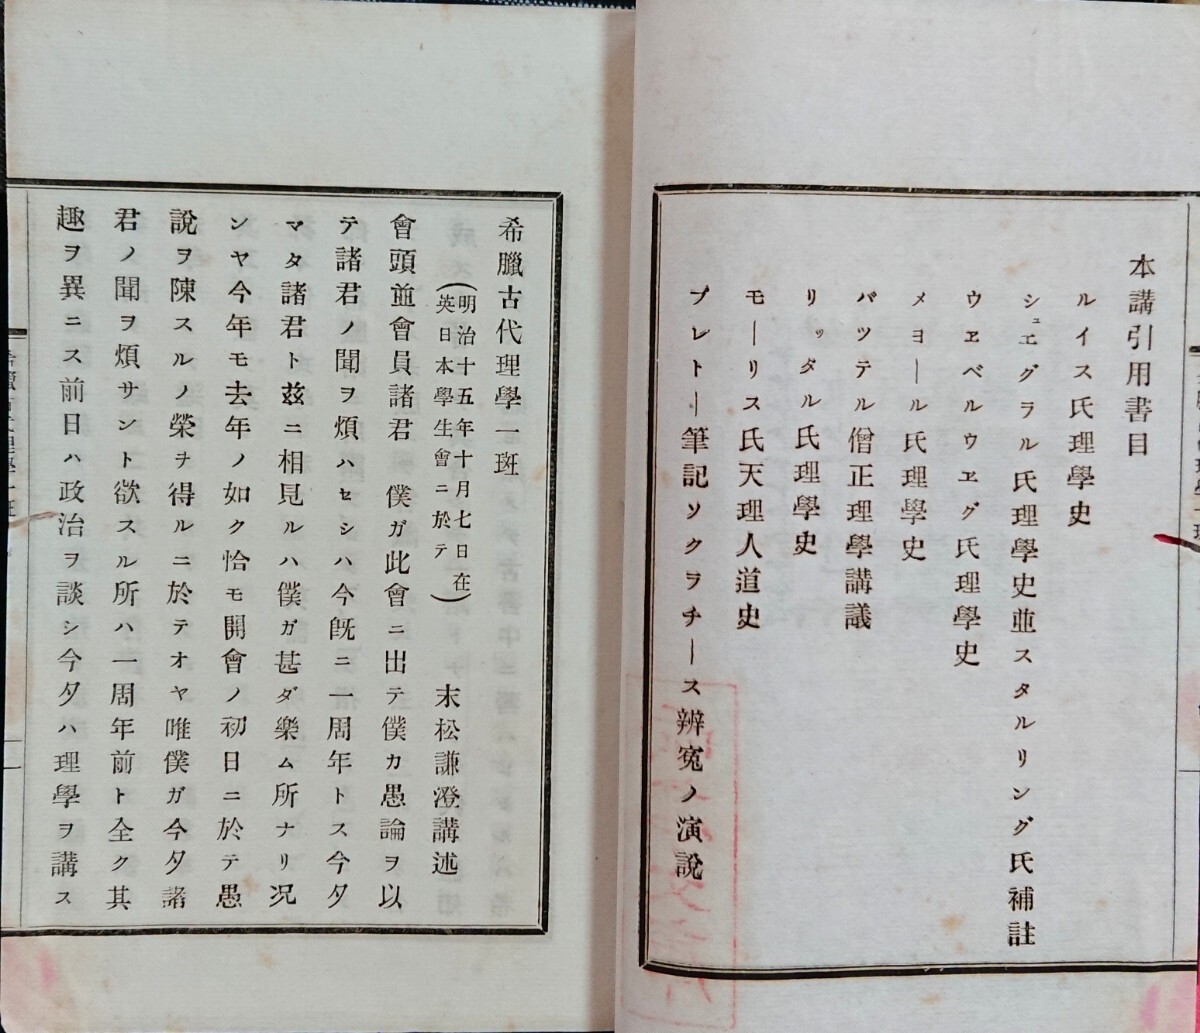 本講引用書目
ルイス氏理學史
シュエグラル氏理學史並スタルリング氏補註
ウヱベルウヱグ氏理學史
メヨール氏理學史
バツテル僧正理學講議
リッタル氏理學史
モーリス氏天理人道史
プレトー筆記ソクラチース辨寃ノ演說
希臘古代理學一斑
(明治十五年十月七日在
英日本學生會ニ於テ)
末松謙澄講述
會頭並會員諸君 僕ガ此會ニ出テ僕カ愚論ヲ以
テ諸君ノ聞ヲ煩ハセシハ今旣ニ一周年トス今夕
マタ諸君ト玆ニ相見ルハ僕ガ甚ダ樂ム所ナリ况
ンヤ今年モ去年ノ如ク恰モ開會ノ初日ニ於テ愚
說ヲ陳スルノ榮ヲ得ルニ於テオヤ唯僕ガ今夕諸
君ノ聞ヲ煩サント欲スル所ハ一周年前ト全ク其
趣ヲ異ニス前日ハ政治ヲ談シ今夕ハ理學ヲ講ス